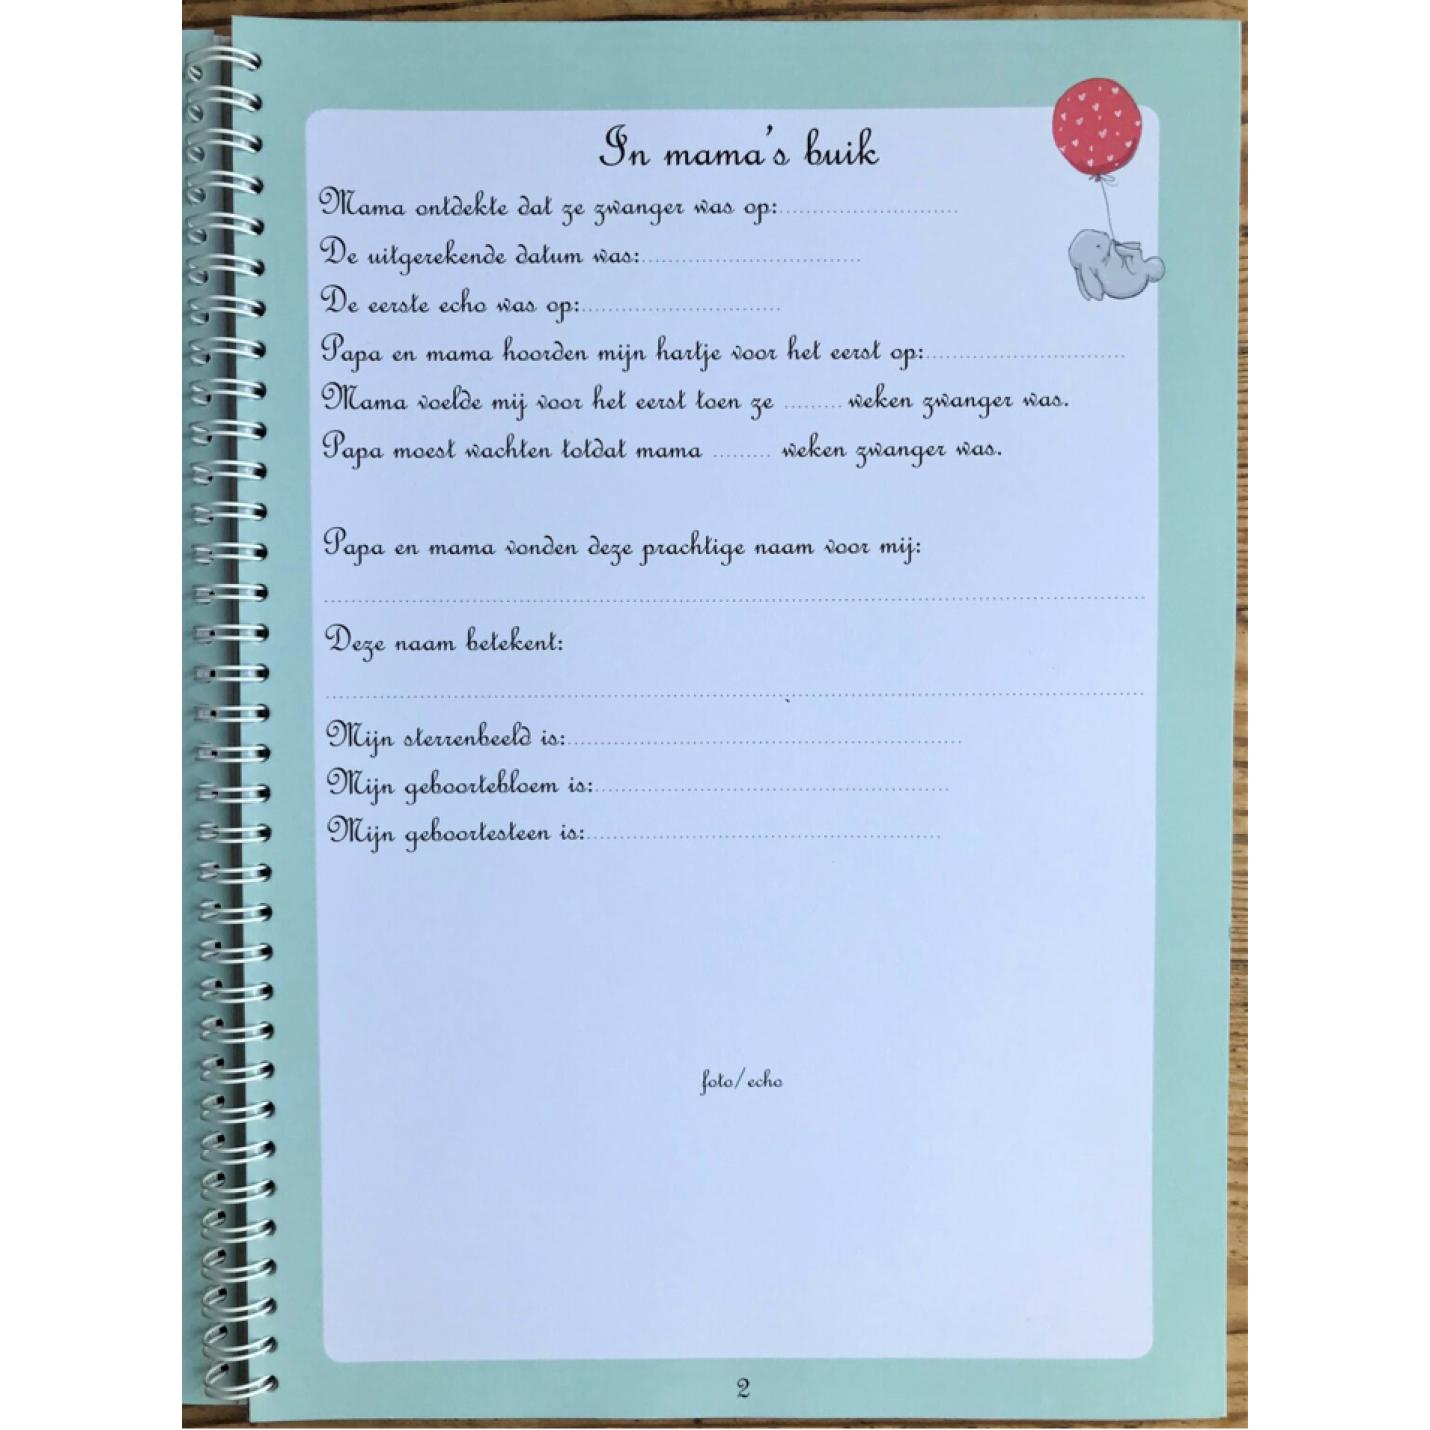 In mama's buik
Mama ontdekte dat ze zwanger was op:..............................
De uitgerekende datum was:....................................
De eerste echo was op:.................................
Papa en mama hoorden mijn hartje voor het eerst op:.................................
Mama voelde mij voor het eerst toen ze ......... weken zwanger was.
Papa moest wachten totdat mama ......... weken zwanger was.
Papa en mama vonden deze prachtige naam voor mij:
........................................................................................................................................
Deze naam betekent:
........................................................................................................................................
Mijn sterrenbeeld is:.................................................................
Mijn geboortebloem is:..........................................................
Mijn geboortesteen is:..........................................................
foto/echo
2